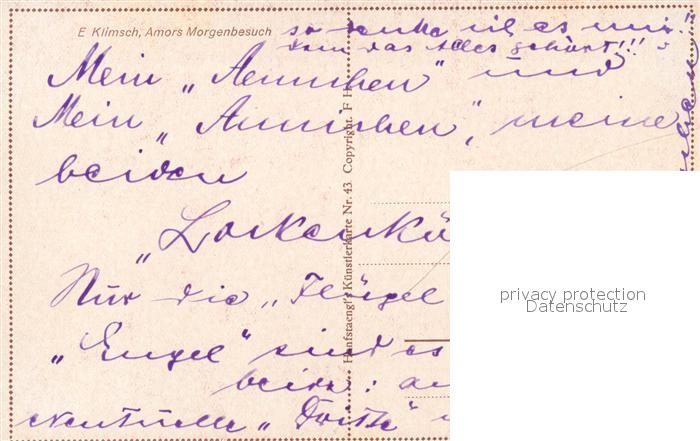 E Klimsch, Amors Morgenbesuch
so denke ich es mir!!
dem das Alles gehört!!!
Mein „Aennchen" und
Mein „Annichen", meine
beiden
„Lockenkö
Nur die „Flügel
„Engel" sind es
beide: an
eventuelle „Dritte"
Hanfstaengl's Künstlerkarte Nr. 43 Copyright. F H
privacy protection
Datenschutz